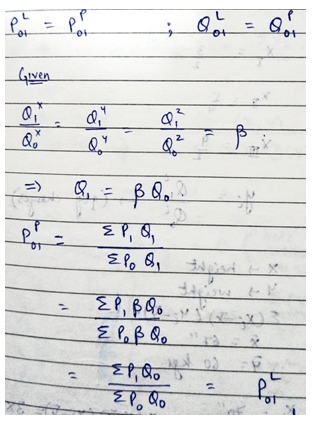 P₀₁ᴸ = P₀₁ᴾ ; Q₀₁ᴸ = Q₀₁ᴾ
Given
Q₁ˣ/Q₀ˣ = Q₁ʸ/Q₀ʸ = Q₁ᶻ/Q₀ᶻ = β
⇒ Q₁ = β Q₀
P₀₁ᴾ = Σ P₁ Q₁ / Σ P₀ Q₁
= Σ P₁ β Q₀ / Σ P₀ β Q₀
= Σ P₁ Q₀ / Σ P₀ Q₀ = P₀₁ᴸ